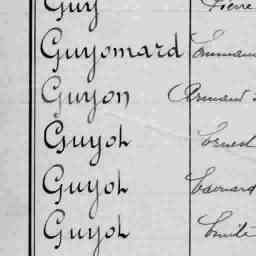 Guy Pierre
Guyomard Emmanu
Guyon Armand
Guyot Ernest
Guyot Edouard
Guyot Emile